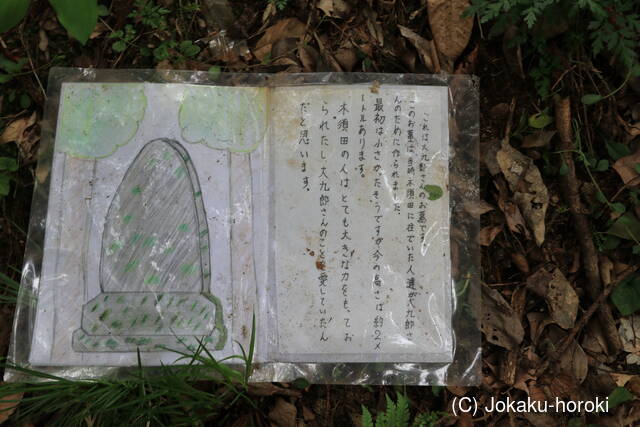 これは大九郎さんのお墓です。
このお墓は、当時木須田に住でいた人達が大九郎さ
んのために作られました。
最初は小さかたそうですが今の高さは約2メ
ートルあります。
木須田の人はとても大きな力をも、てお
られたし大九郎さんのことを愛していたん
だと思います。
(C) Jokaku-horoki